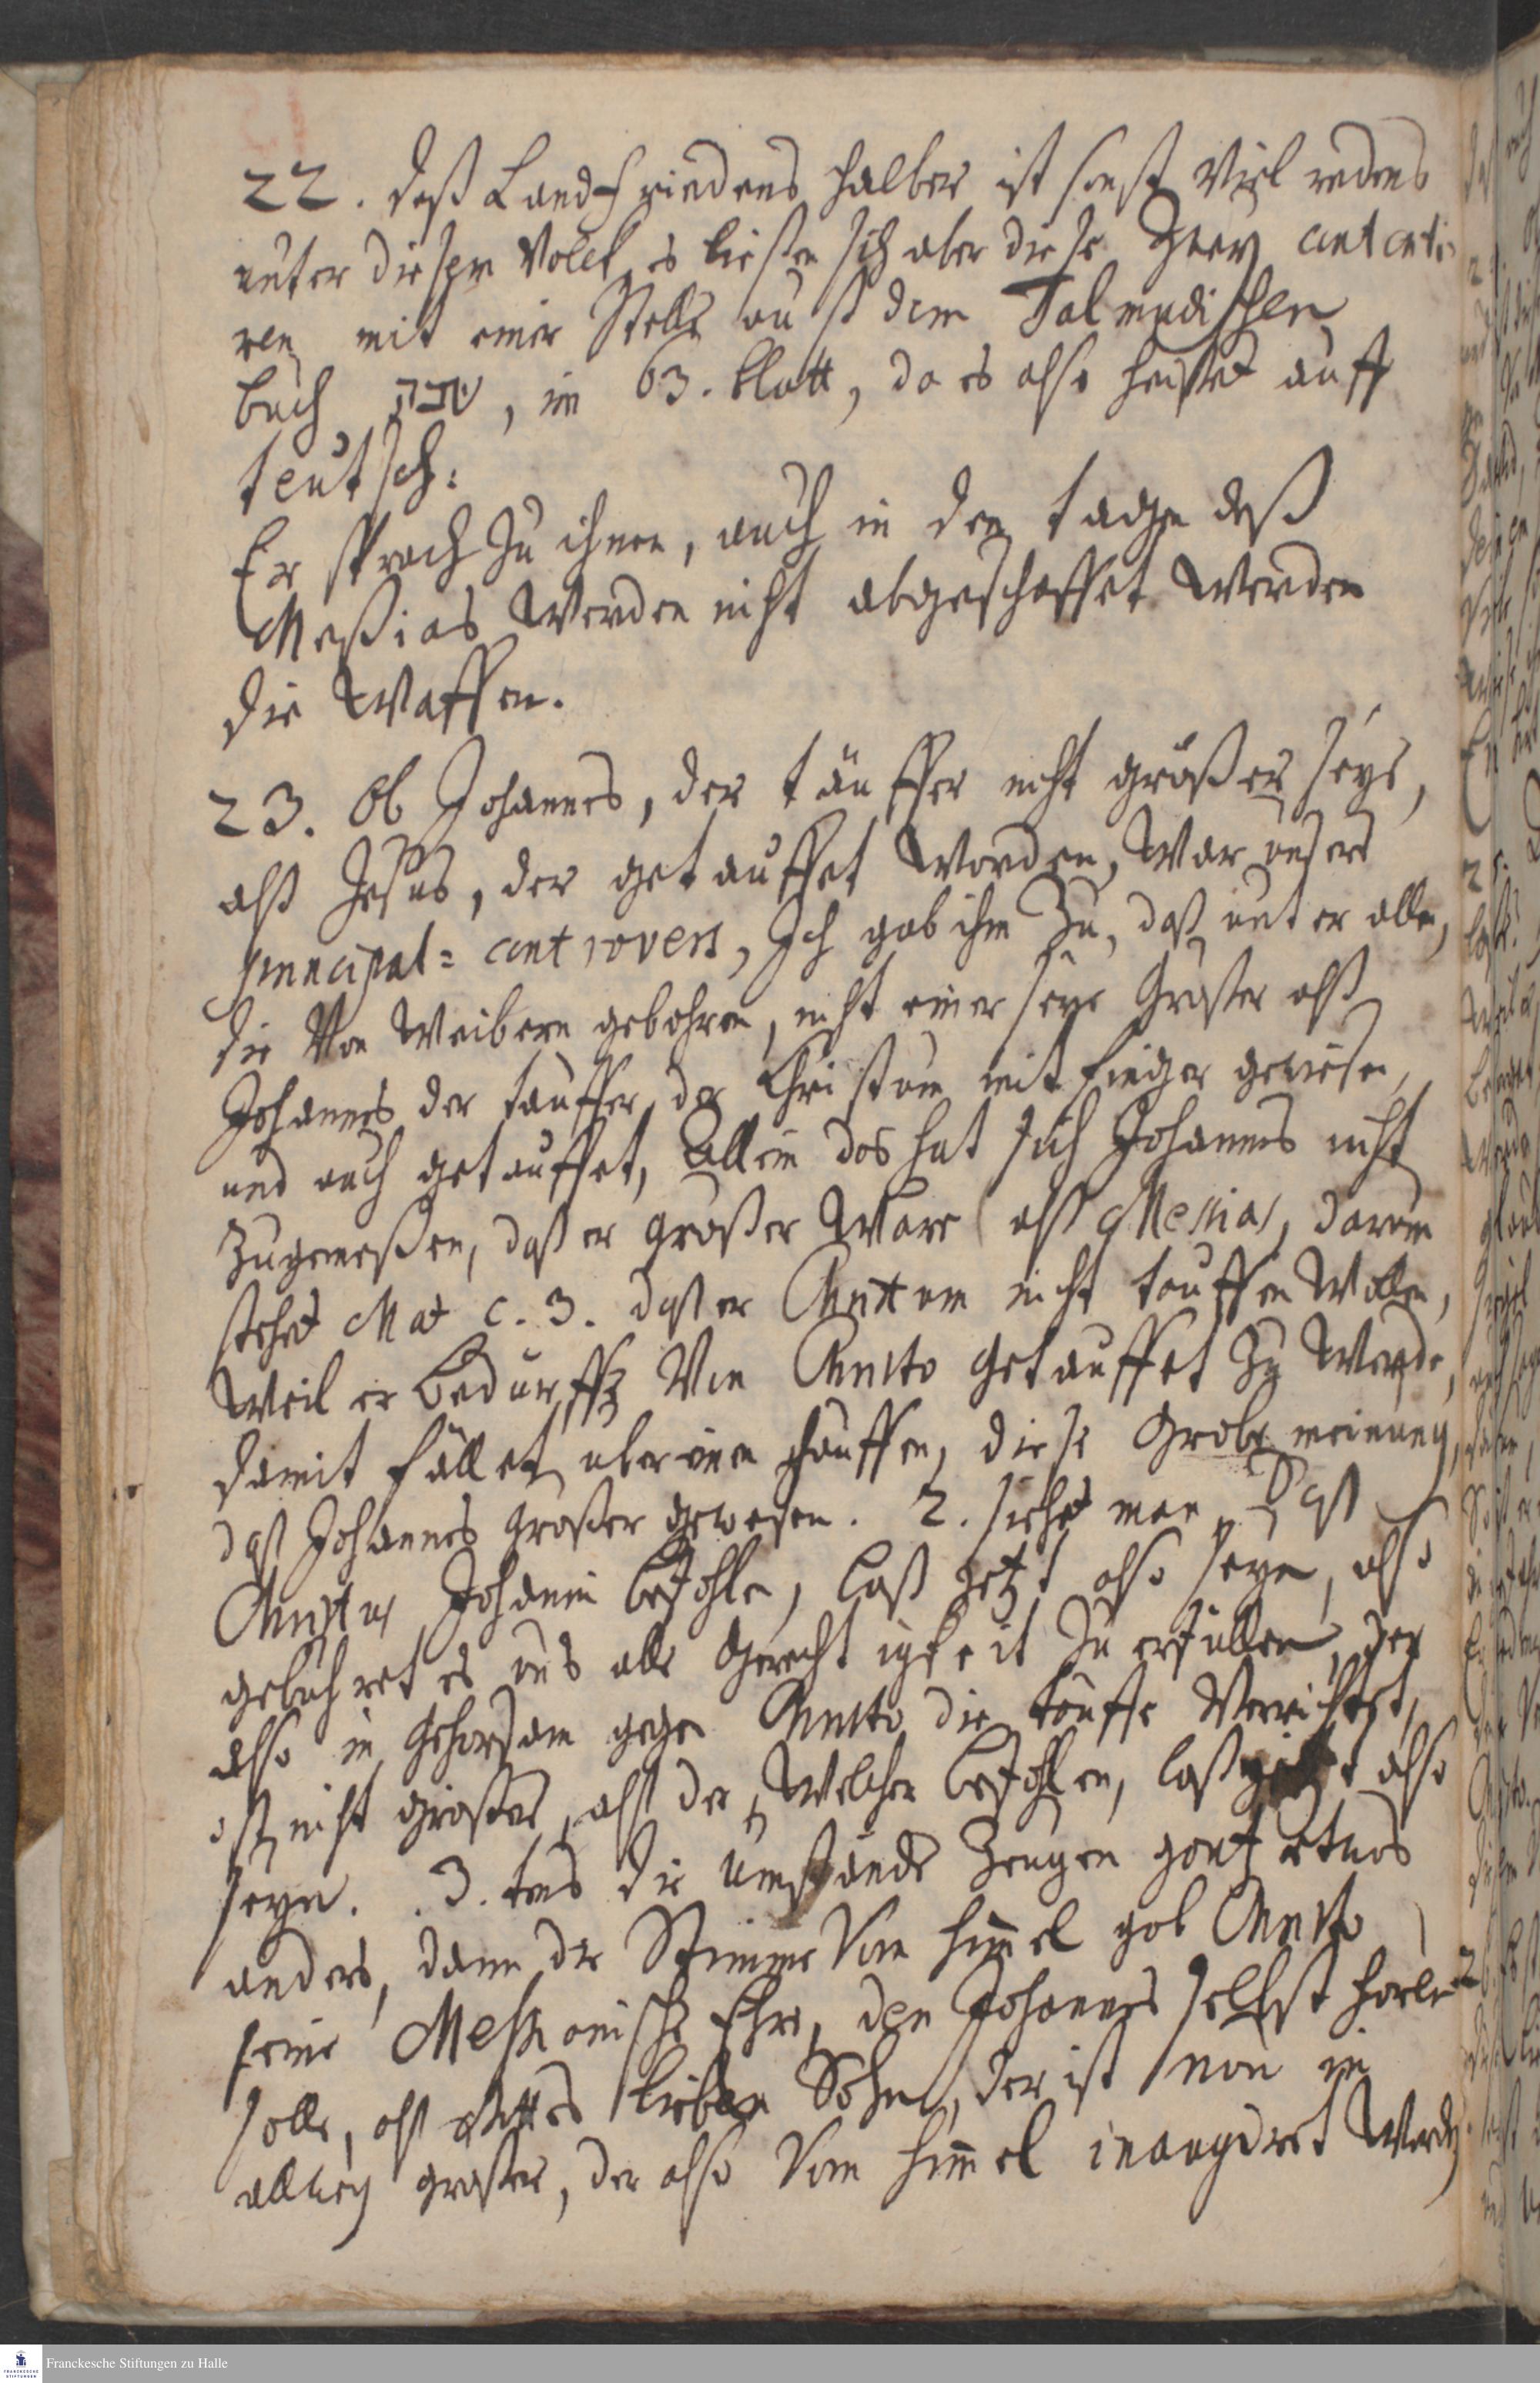 22. deß Landfriedens halber ist sonst viel redens
unter diesem Volck, es ließen sich aber diese Zwey contenti-
ren mit einer Stelle auß dem Talmudischen
buch שבת, im 63. blatt, da es also heißet auff
teutsch:
Er sprach zu ihnen, auch in den tagen deß
Meßias werden nicht abgeschaffet werden
die Waffen.
23. Ob Johannes, der täuffer nicht größer seye,
alß Jesus, der getauffet worden, war unsere
principal= controvers, Ich gab ihm zu, daß unter allen,
die Von Weibern gebohren, nicht einer seye großer alß
Johannes der tauffer, der Christum mit finger gewiesen,
und auch getauffet, Allein das hat sich Johannes nicht
zugemeßen, daß er großer ware alß Messias, darum
stehet Mat c. 3. daß er Christum nicht tauffen wollen,
Weil er bedurffte Von Christo getauffet zu werden,
damit fället uber einen hauffen, diese Grobe meinung,
daß Johannes großer gewesen. 2. siehet man, Daß
Christus Johanni befohlen, laß jetzt also seyn, also
gebuhret es uns alle Gerechtigkeit zu erfüllen, der
also in Gehorsam gegen Christo die tauffe Verrichtet,
ist nicht großer, alß der, Welcher befohlen, laß jetzt also
seyn. 3. tens die Umstände zeugen gantz etwas
anders, dann die Stimme Vom himmel gab Christo
seine Messianische Ehre, den Johannes selbst horen
solle, alß Gottes lieben Sohn, der ist nun in
allweg großer, der also Vom himmel worden